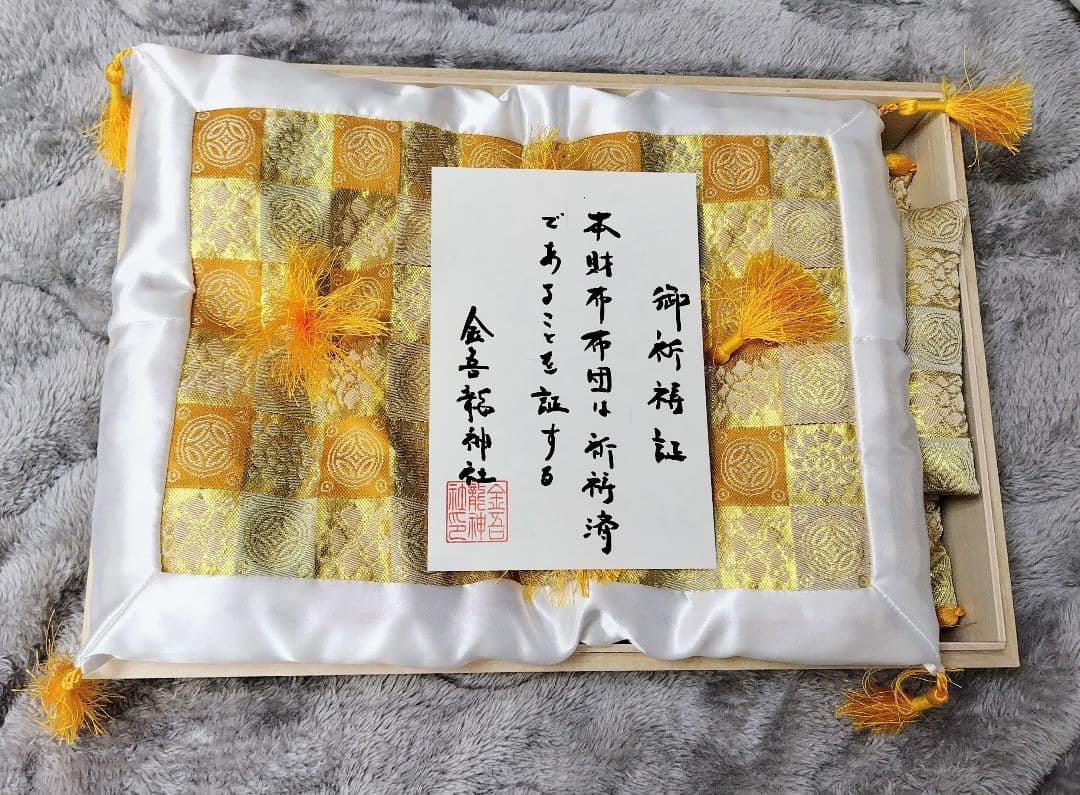 御祈祷証
本財布布団は祈祷済
であることを証する
金吾龍神社
金吾
龍神
社印